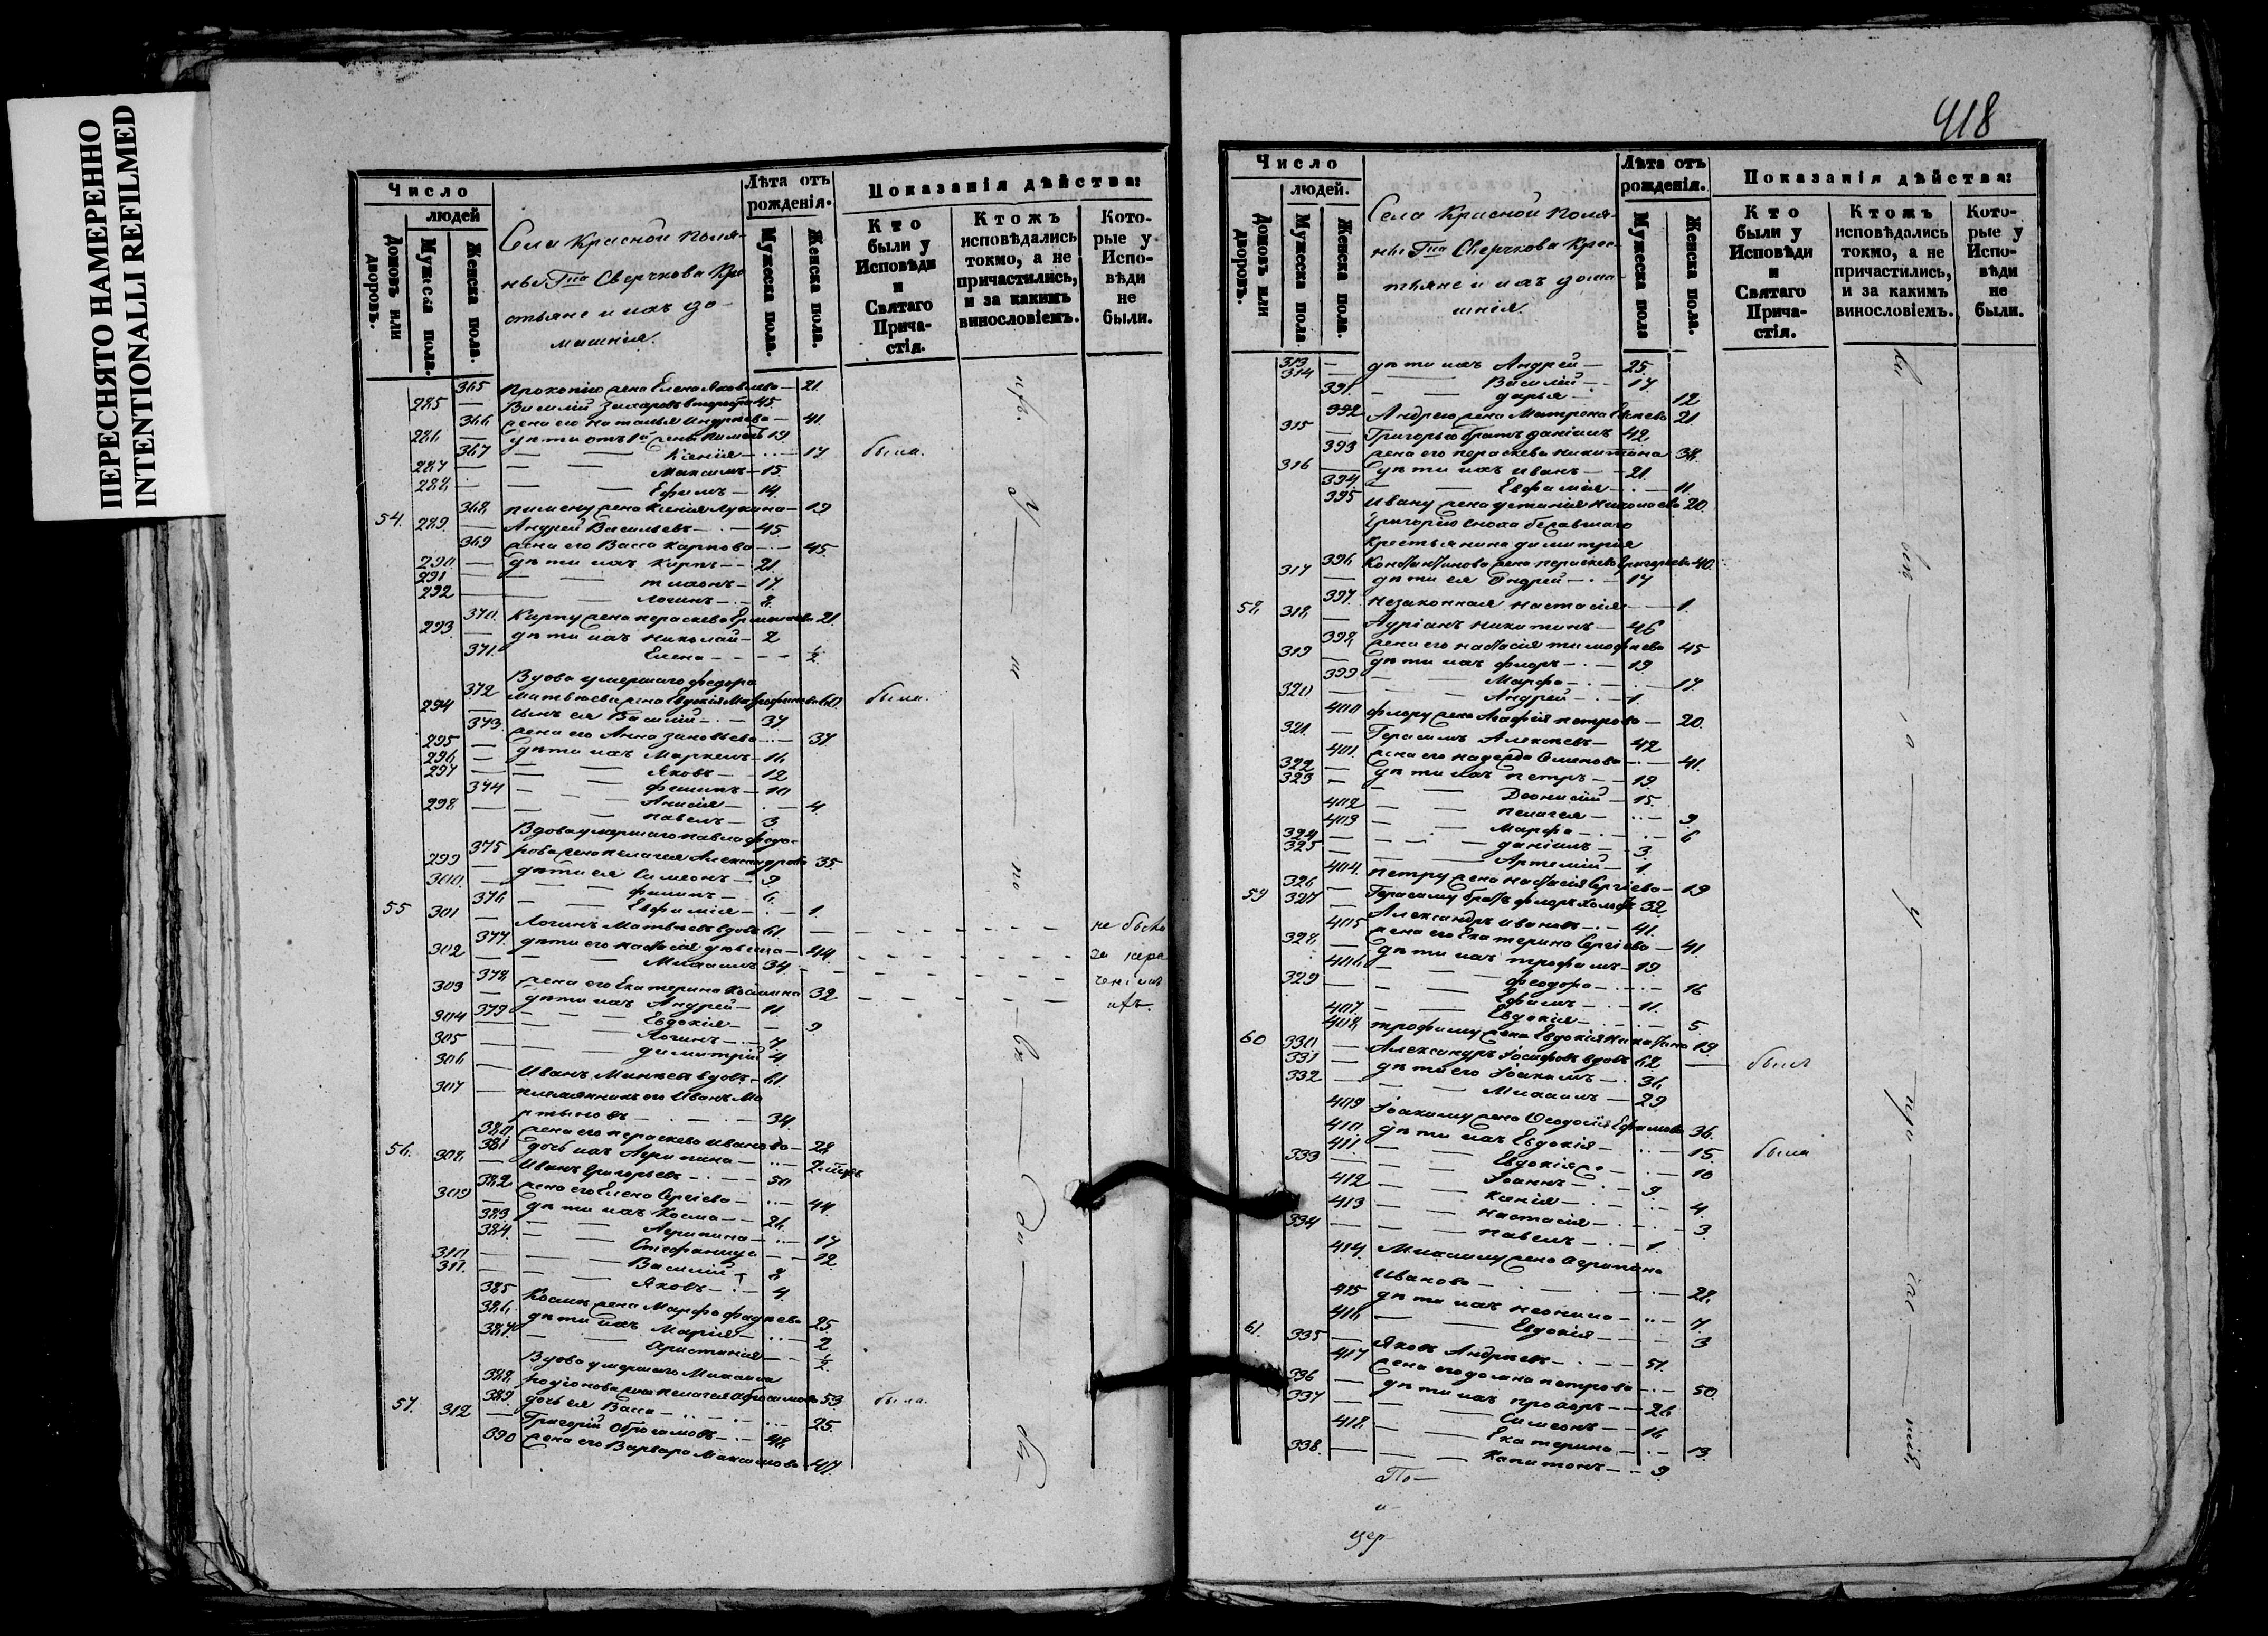 ПЕРЕСНЯТО НАМЕРЕННО
INTENTIONALLI REFILMED
Число
людей
Домовъ или дворовъ.
Мужеска пола.
Женска пола.
Села Красной Поля-
ны Гна Сверчкова Кре
стьяне и ихъ до-
машнія.
Лѣта отъ рожденія.
Мужеска пола.
Женска пола.
Показанія дѣйства:
Кто были у Исповѣди и Святаго Прича-стія.
Ктожъ исповѣдались токмо, а не причастились, и за какимъ винословіемъ.
Кото-рые у Испо-вѣди не были.
365 Прокопію жена Елена Яковлева — 21.
285 — Василій Захаровъ 45.
366 жена его Наталья Андреева — 41.
286 — дѣти отъ 1й жены Пименъ 19
367 — — Ксенія — 17 была.
287 — — Максимъ — 15.
288 — — Ефимъ — 14.
368 Пимену жена Ксенія Лукина — 19
54. 289. — Андрей Васильевъ — 45
369 жена его Васса Карпова — 45.
290. — дѣти ихъ Карпъ — 21.
291 — — Тихонъ — 17
292 — — Логинъ — 8.
370. Карпу жена Пераскева 21.
293. — дѣти ихъ Николай — 2
371. Елена — ½
Вдова умершаго Федора
372 Матвѣева жена Евдокія 60 была.
294 — сынъ ея Василій — 37
373. жена его Анна Зиновьева — 37
295 — дѣти ихъ Маркелъ — 16
296 — — Яковъ — 12
297 — — Филипъ — 10
374 — — Анисія — 4.
298 — — Павелъ — 3
Вдова умершаго Павла Федо-
375 рова жена Пелагея Александрова 35.
299 — дѣти ея Симеонъ — 9
300. — — Филипъ — 6.
376 — — Евфимія — 1.
55 301 — Логинъ Матвѣевъ вдовъ 61 — не были
377. дѣти его Настасія дѣвица — 44.
302 — — Михаилъ 34
378 жена его Екатерина Космина 32
303 — дѣти ихъ Андрей — 11.
379 — — Евдокія — 9
304 — — Логинъ — 7.
305 — — Димитрій 4.
306 — Иванъ Минѣевъ вдовъ — 61
307 — племянникъ его Иванъ Ма
ртыновъ — 34.
380. жена его Пераскева Иванова — 28
381 дочь ихъ Агрипина — 2
56. 308. — Иванъ Григорьевъ — 50
382 жена его Елена Сергіева — 44.
309 — дѣти ихъ Косма — 26.
383 — — Агрипина — 17
384. — — Стефанида — 12
310 — — Василій — 8
311. — — Яковъ — 4.
385 Космѣ жена Марфа Фадѣева 25
386. дѣти ихъ Марія — 2
387. — Христинія — ½
Вдова умершаго Михаила
388. Родіонова жена Пелагея Абросимова 53 была.
389. дочь ея Васса — 25.
57. 312 — Григорій Абросимовъ — 48.
390 жена его Варвара Максимова 47.
418
Число
людей.
Домовъ или дворовъ.
Мужеска пола.
Женска пола.
Села Красной Поля-
ны Гна Сверчкова крес-
тьяне и ихъ дома-
шнія.
Лѣта отъ рожденія.
Мужеска пола
Женска пола.
Показанія дѣйства:
Кто были у Исповѣди и Святаго Прича-стія.
Ктожъ исповѣдались токмо, а не причастились, и за какимъ винословіемъ.
Кото-рые у Испо-вѣди не были.
313 — дѣти ихъ Андрей — 25.
314 — — Василій — 17.
391. — — Дарья — 12
392 Андрею жена Матрона 21.
315 — Григорью братъ Даніилъ 42.
393 жена его Пераскева Никитина 38.
316 — дѣти ихъ Иванъ — 21.
394. — — Евфимія — 11.
395 Ивану жена Устинія Николаева 20.
Григорію сноха бежавшаго
крестьянина Димитрія
396 Константинова жена Пераскева Григорьева 40.
317 — дѣти ея Андрей — 17
397. незаконная Настасія — 1.
58. 318. — Адріанъ Никитинъ — 46
398. жена его Настасія Тимофеева 45
319 — дѣти ихъ Флоръ — 19
399 — — Марфа — 17.
320 — — Андрей — 1.
400 Флору жена Агафія Петрова — 20.
321. — Герасимъ Алексѣевъ — 42
401. жена его Надежда Семенова — 41.
322 — дѣти ихъ Петръ — 19.
323 — — Діонисій — 15.
402 — — Пелагея — 9.
403 — — Марфа — 6
324 — — Даніилъ — 3.
325 — — Артемій — 1.
404. Петру жена Настасія Сергіева — 19
326 — Герасиму братъ Флоръ холостъ 32
59 327 — Александръ Ивановъ — 41.
405 жена его Екатерина Сергіева — 41.
328. — дѣти ихъ Трофимъ — 19.
406. — — Феодора — 16
329 — — Ефимъ — 11.
407. — — Евдокія — 5.
408. Трофиму жена Евдокія Никитина 19.
60 330 — Александръ Іосифовъ вдовъ 62 — былъ
331 — дѣти его Іоакимъ — 36.
332 — — Михаилъ — 29
409 Іоакиму жена Феодосія Ефимова 36.
410. дѣти ихъ Евдокія — 15. была
411. — — Евдокія — 10
333 — — Іоаннъ — 9
412 — — Ксенія — 4.
413 — — Настасія — 3
334 — — Павелъ — 1
414. Михаилу жена Агрипина
Иванова — 28.
415 дѣти ихъ Неонила — 7.
416. — — Евдокія — 3
61. 335 — Яковъ Андреевъ — 51.
417 жена его Домна Петрова — 50.
336 — дѣти ихъ Прохоръ — 26
337 — — Симеонъ — 16
418. — — Екатерина — 13.
338. — — Капитонъ — 9.
По—
и—
цер—